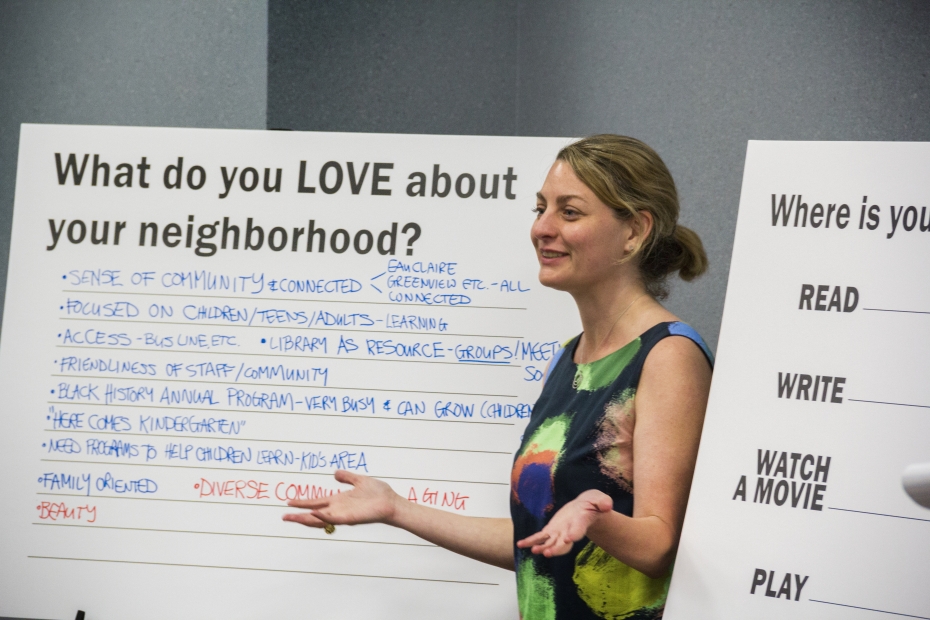 What do you LOVE about
your neighborhood?
•SENSE OF COMMUNITY & CONNECTED < EAUCLAIRE
GREENVIEW ETC.-ALL
CONNECTED
•FOCUSED ON CHILDREN/TEENS/ADULTS-LEARNING
•ACCESS-BUS LINE, ETC. •LIBRARY AS RESOURCE-GROUPS/MEET
SO
•FRIENDLINESS OF STAFF/COMMUNITY
•BLACK HISTORY ANNUAL PROGRAM-VERY BUSY & CAN GROW (CHILDREN
•"HERE COMES KINDERGARTEN"
•NEED PROGRAMS TO HELP CHILDREN LEARN-KID'S AREA
•FAMILY ORIENTED •DIVERSE COMMU AGING
•BEAUTY
Where is you
READ
WRITE
WATCH
A MOVIE
PLAY